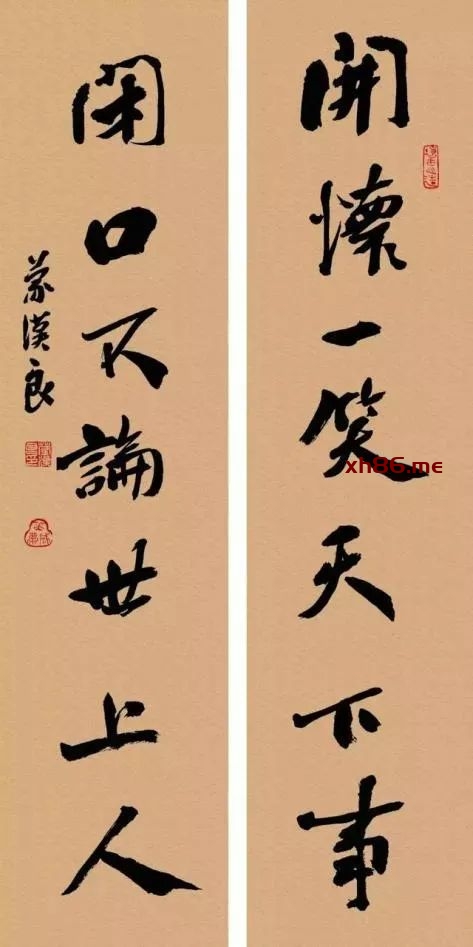 開懷一笑天下事
閉口不論世上人
蒙漢良
xh86.me